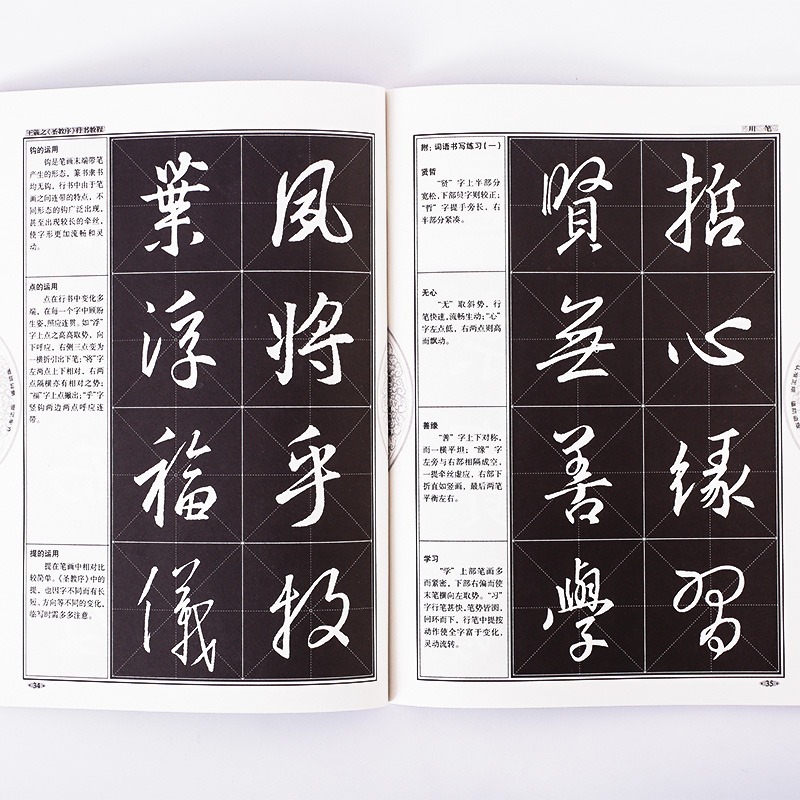 王羲之《圣教序》行书教程
钩的运用
钩是笔画末端带笔
产生的形态，篆书隶书
均无钩，行书中由于笔
画之间连带的特点，不
同形态的钩广泛出现，
甚至出现较长的牵丝，
使字形更加流畅和灵
动。
葉 夙
点的运用
点在行书中变化多
端，在每一个字中顾盼
生姿，照应连贯。如“浮”
字上点之高高取势，向
下呼应，右侧三点变为
一横折引出下笔；“将”字
左两点上下相对，右两
点隔横亦有相对之势；
“福”字上点撇出；“乎”字
竖钩两边两点呼应连
带。
浮 将
福 乎
提的运用
提在笔画中相对比
较简单。《圣教序》中的
提，也因字不同而有长
短、方向等不同的变化，
临写时需多多注意。
儀 投
34
用 笔
附：词语书写练习（一）
贤哲
“贤”字上半部分
宽松，下部贝字则较正；
“哲”字提手旁长，右
半部分紧凑。
賢 哲
无心
“无”取斜势，行
笔快速，流畅生动；“心”
字左点低，右两点则高
而飘动。
無 心
善缘
“善”字上下对称，
而一横平坦；“缘”字
左旁与右部相隔成空，
一提牵丝虚应，右部下
折直如竖画，最后两笔
平衡左右。
善 缘
学习
“学”上部笔画多
而紧密，下部右偏而使
末笔横向左取势。“习”
字行笔甚快，笔势皆圆，
回环而下，行笔中提按
动作使全字富于变化，
灵动流转。
學 習
35